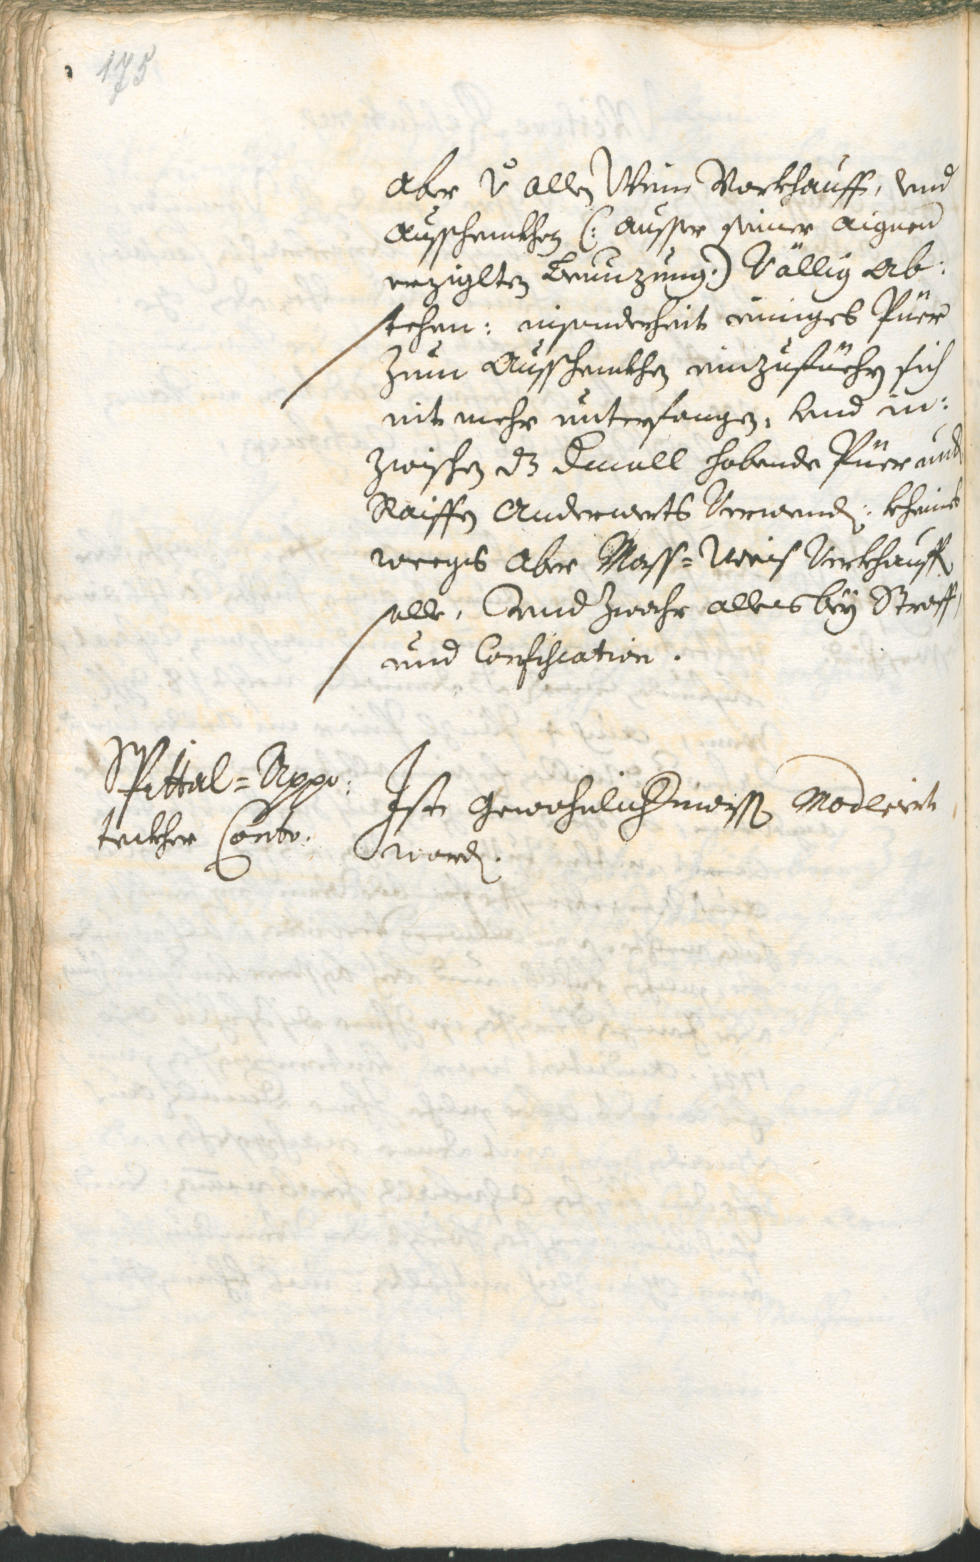 175
aber v allen Wein Verkhauff, und
ausschenkhen (: ausser seiner aignen
erziglten Benuzung:) Völlig ab:
stehen: insonderheit einiges Püer
zum Ausschenkhen einzuführn sich
nit mehr unterfangen, und in:
zwischen dz Emall habende Püer und
Raiffen Anderwerts Verwenden: kheines
weegs aber Mass=Weis Verkhauffen
solle, Und zwahr alles bey Straff,
und Confiscation.
Spittal=Appo:
teckher Conto.
Ist gewohnlichermassen Moderirt
worden.